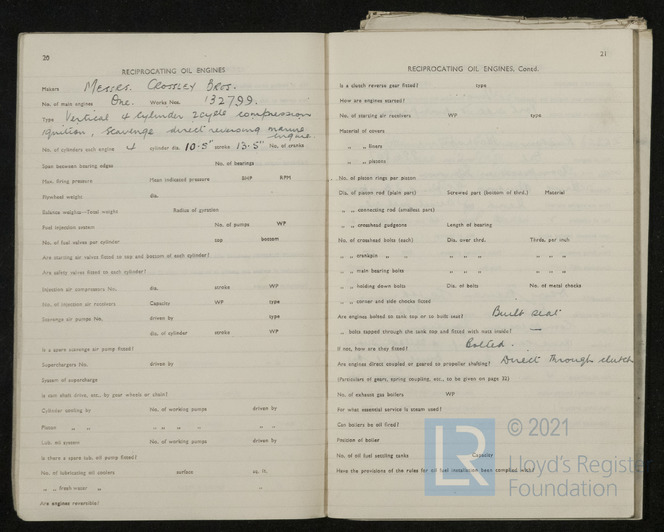 20
RECIPROCATING OIL ENGINES
Makers Messrs. Crossley Bros.
No. of main engines One. Works Nos. 132799.
Type Vertical 4 cylinder 2 cycle compression
ignition, scavenge direct reversing marine
engine.
No. of cylinders each engine 4 cylinder dia. 10·5" stroke 13·5" No. of cranks
Span between bearing edges No. of bearings
Max. firing pressure Mean indicated pressure BHP RPM
Flywheel weight dia.
Balance weights—Total weight Radius of gyration
Fuel injection system No. of pumps WP
No. of fuel valves per cylinder top bottom
Are starting air valves fitted to top and bottom of each cylinder?
Are safety valves fitted to each cylinder?
Injection air compressors No. dia. stroke WP
No. of injection air receivers Capacity WP type
Scavenge air pumps No. driven by type
dia. of cylinder stroke WP
Is a spare scavenge air pump fitted?
Superchargers No. driven by
System of supercharge
Is cam shaft drive, etc., by gear wheels or chain?
Cylinder cooling by No. of working pumps driven by
Piston „ „ „ „ „ „ „
Lub. oil system No. of working pumps driven by
Is there a spare lub. oil pump fitted?
No. of lubricating oil coolers surface sq. ft.
„ „ fresh water „ „
Are engines reversible?
21
RECIPROCATING OIL ENGINES, Contd.
Is a clutch reverse gear fitted? type
How are engines started?
No. of starting air receivers WP type
Material of covers
„ „ liners
„ „ pistons
No. of piston rings per piston
Dia. of piston rod (plain part) Screwed part (bottom of thrd.) Material
„ „ connecting rod (smallest part)
„ „ crosshead gudgeons Length of bearing
No. of crosshead bolts (each) Dia. over thrd. Thrds. per inch
„ „ crankpin „ „ „ „ „ „ „ „
„ „ main bearing bolts „ „ „ „ „ „
„ „ holding down bolts Dia. of bolts No. of metal chocks
„ „ corner and side chocks fitted
Are engines bolted to tank top or to built seat? Built seat
„ bolts tapped through the tank top and fitted with nuts inside? —
If not, how are they fitted? Bolted.
Are engines direct coupled or geared to propeller shafting? Direct through clutch
(Particulars of gears, spring coupling, etc., to be given on page 32)
No. of exhaust gas boilers WP
For what essential service is steam used?
Can boilers be oil fired?
Position of boiler
No. of oil fuel settling tanks Capacity
Have the provisions of the rules for oil fuel installation been complied with?
LR
© 2021
Lloyd's Register
Foundation